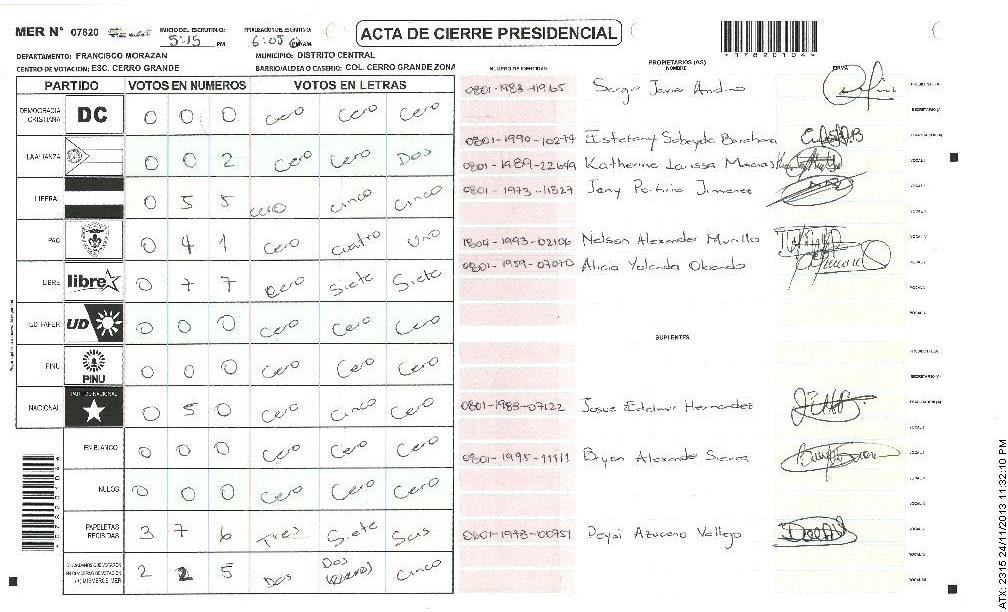 MER N° 07820 INICIO DEL ESCRUTINIO: 5:15 PM FINALIZACION DE ESCRUTINIO: 6:05 PM/AM ACTA DE CIERRE PRESIDENCIAL
DEPARTAMENTO: FRANCISCO MORAZAN MUNICIPIO: DISTRITO CENTRAL
CENTRO DE VOTACION: ESC. CERRO GRANDE BARRIO/ALDEA O CASERIO: COL. CERRO GRANDE ZONA
PARTIDO VOTOS EN NUMEROS VOTOS EN LETRAS
DEMOCRACIA CRISTIANA DC 0 0 0 Cero Cero Cero
LA ALIANZA 0 0 2 Cero Cero Dos
LIBERAL 0 5 5 Cero Cinco Cinco
PAC 0 4 1 Cero Cuatro Uno
LIBRE libre 0 7 7 Cero Siete Siete
UD FAPER UD 0 0 0 Cero Cero Cero
PINU PINU 0 0 0 Cero Cero Cero
NACIONAL PARTIDO NACIONAL 0 5 0 Cero Cinco Cero
EN BLANCO 0 0 0 Cero Cero Cero
NULOS 0 0 0 Cero Cero Cero
PAPELETAS RECIBIDAS 3 7 6 Tres Siete Seis
CIUDADANOS QUE VOTARON EN CUADERNO DE VOTACION (+) MIEMBROS MER 2 2 5 Dos Dos Cinco
NUMERO DE IDENTIDAD PROPIETARIOS (AS) NOMBRE FIRMA
0801-1983-11965 Sergio Javier Andino PRESIDENTE (A)
SECRETARIO (A)
0801-1990-10274 Estefany Sobeyda Barahona
0801-1989-22649 Katherine Larissa Macias VOCAL I
0801-1973-11327 Jeny Porfirio Jimenez
1804-1993-02106 Nelson Alexander Murillo
0801-1959-07070 Alicia Yolanda Obando
SUPLENTES
PRESIDENTE (A)
SECRETARIO (A)
0801-1983-07122 Josue Edelmir Hernandez
0801-1995-11111 Bryan Alexander Sierra
0801-1993-00751 Deysi Azucena Vallejo
ATX: 2315 24/11/2013 11:32:10 PM